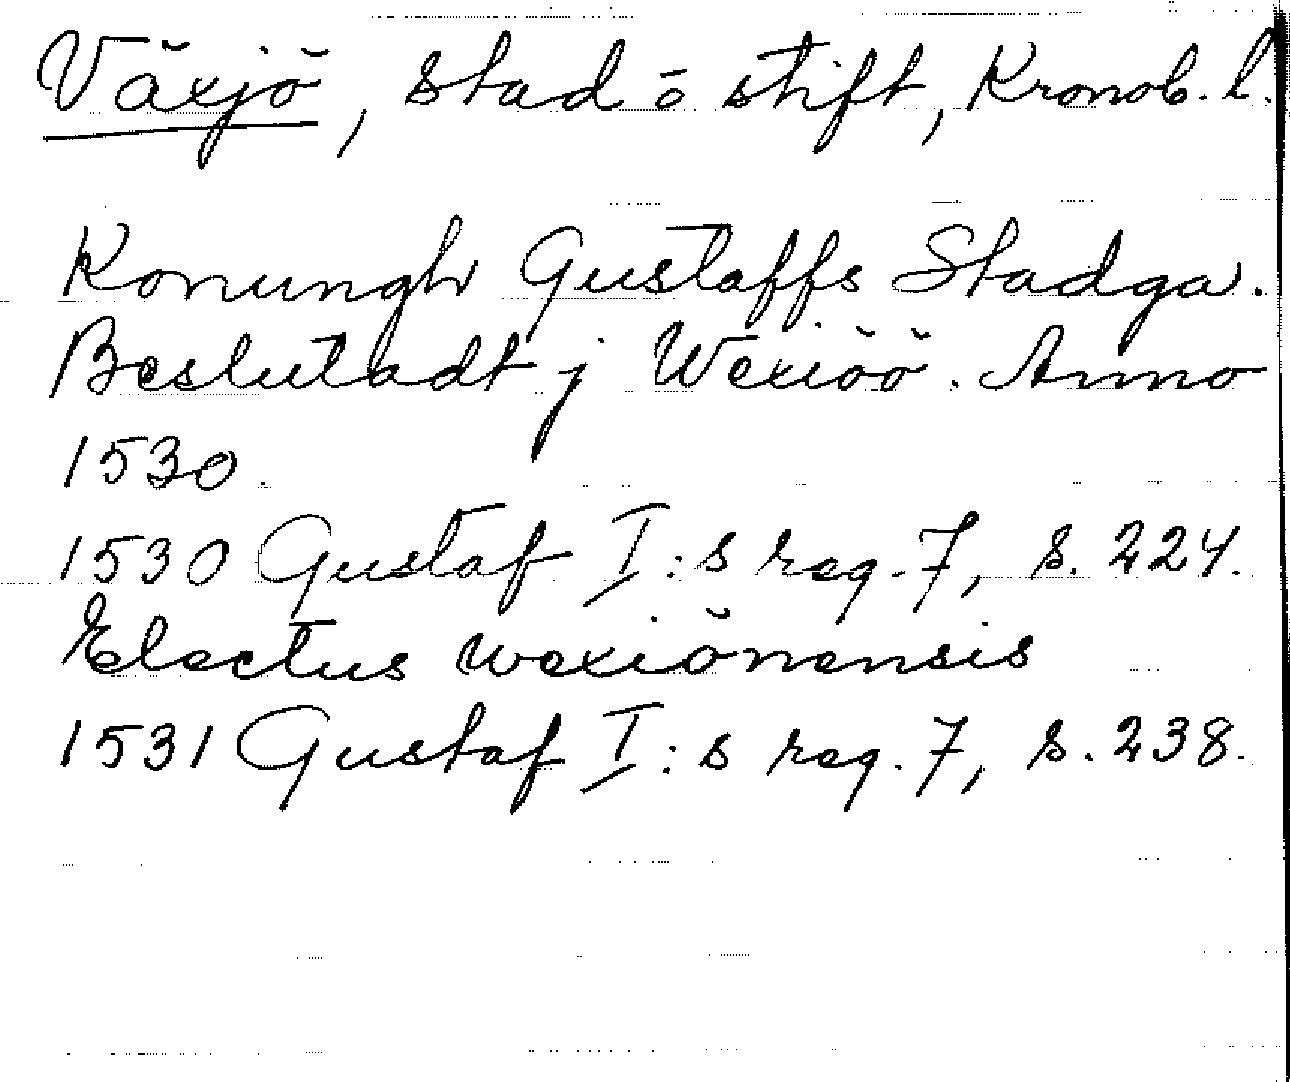 Växjö, stad o stift, Kronob. l.
Konungh Gustaffs Stadga.
Beslutadt j Wexiöö. Anno
1530.
1530 Gustaf I:s reg. 7, s. 224.
Electus wexiönensis
1531 Gustaf I:s reg. 7, s. 238.